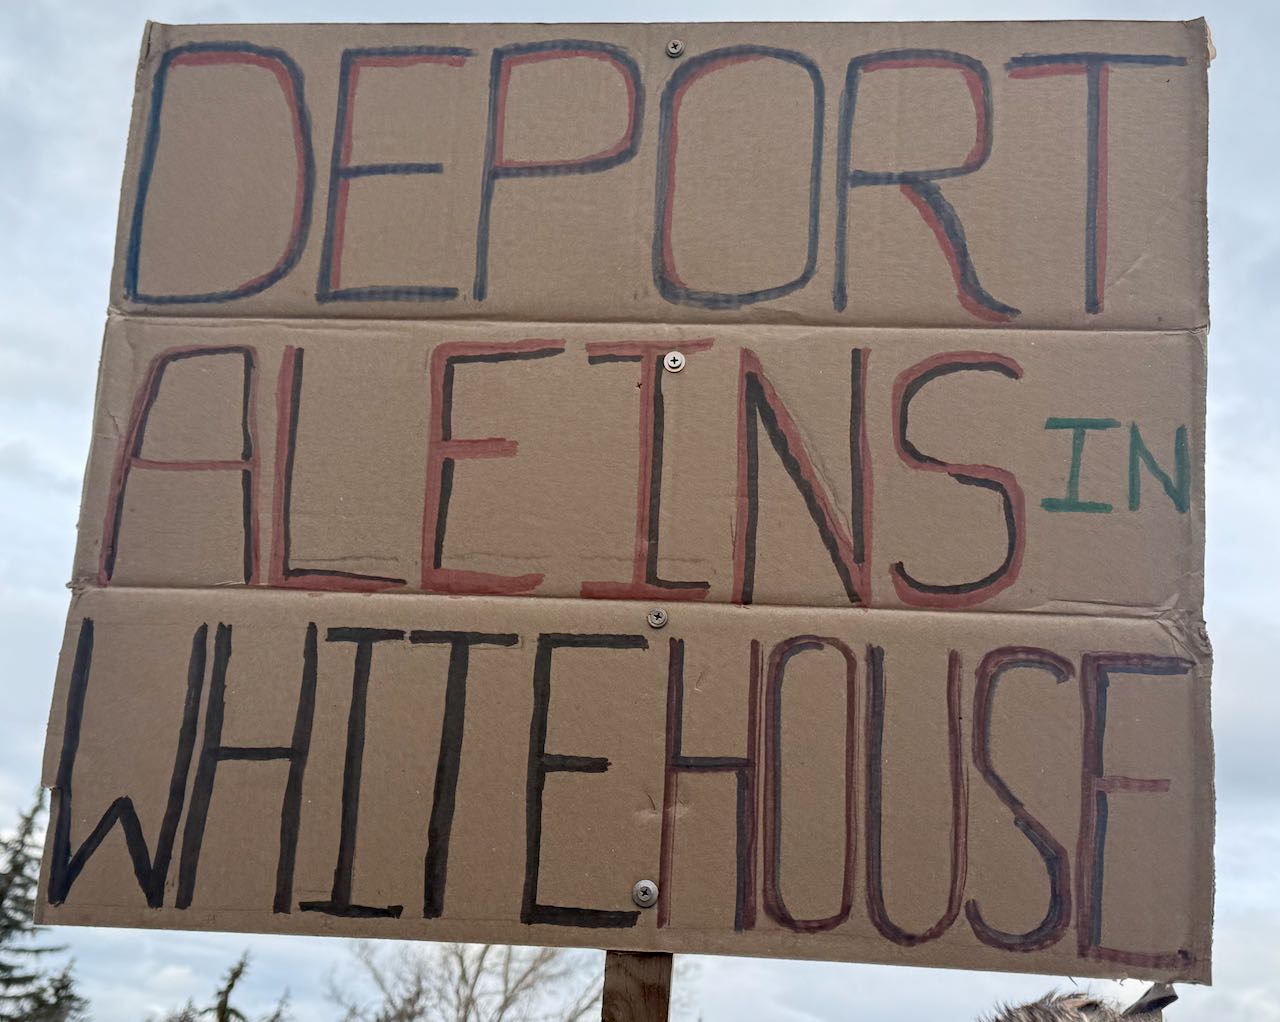 DEPORT
ALEINS IN
WHITEHOUSE